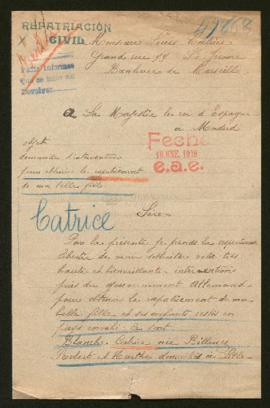 REPATRIACIÓN
CIVIL
Monsieur Louis Catrice
Grande rue
Banlieue de Marseille
A Sa Majesté le roi d'Espagne
à Madrid
objet
demande d'intervention
pour obtenir le rapatriement
de ma belle fille
Fecha
18 ENE. 1918
e.a.e.
Catrice
Sire
Par la présente je prends la respectueuse
liberté de venir solliciter votre très
haute et bienveillante intervention
près du gouvernement Allemand
pour obtenir le rapatriement de ma
belle fille et ses enfants restés en
pays envahi. Ce sont
Blanche Catrice née
Robert et Marthe